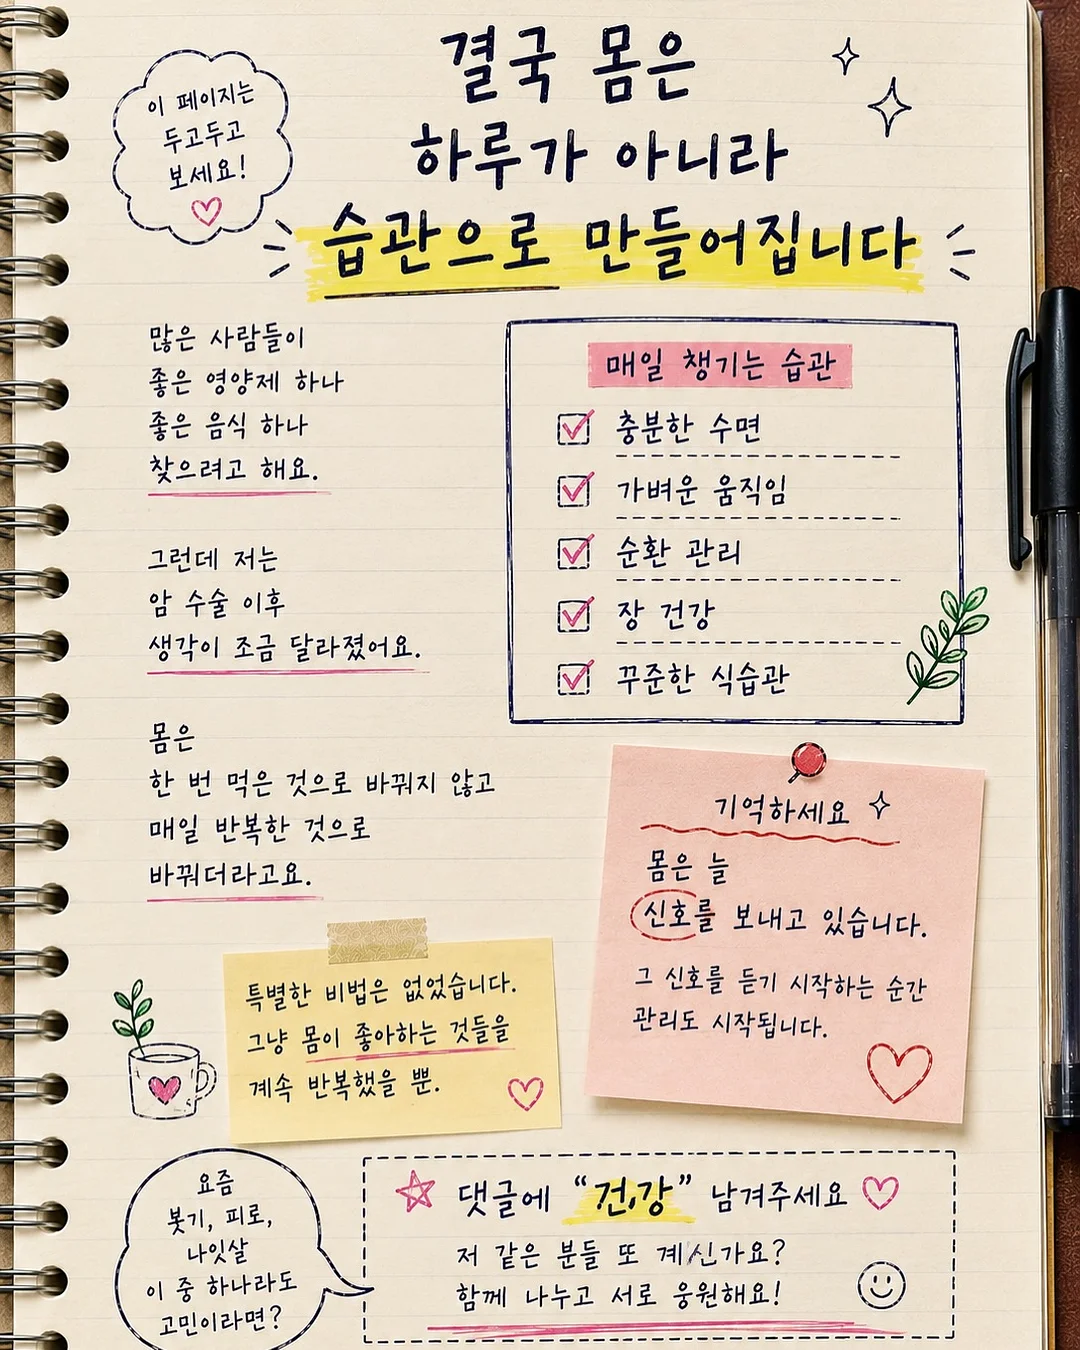 이 페이지는
두고두고
보세요!
결국 몸은
하루가 아니라
습관으로 만들어집니다
많은 사람들이
좋은 영양제 하나
좋은 음식 하나
찾으려고 해요.
그런데 저는
암 수술 이후
생각이 조금 달라졌어요.
몸은
한 번 먹은 것으로 바꿔지 않고
매일 반복한 것으로
바꿔더라고요.
매일 챙기는 습관
충분한 수면
가벼운 움직임
순환 관리
장 건강
꾸준한 식습관
기억하세요
몸은 늘
신호를 보내고 있습니다.
그 신호를 듣기 시작하는 순간
관리도 시작됩니다.
특별한 비법은 없었습니다.
그냥 몸이 좋아하는 것들을
계속 반복했을 뿐.
요즘
붓기, 피로,
나잇살
이 중 하나라도
고민이라면?
댓글에 “건강” 남겨주세요
저 같은 분들 또 계신가요?
함께 나누고 서로 응원해요!